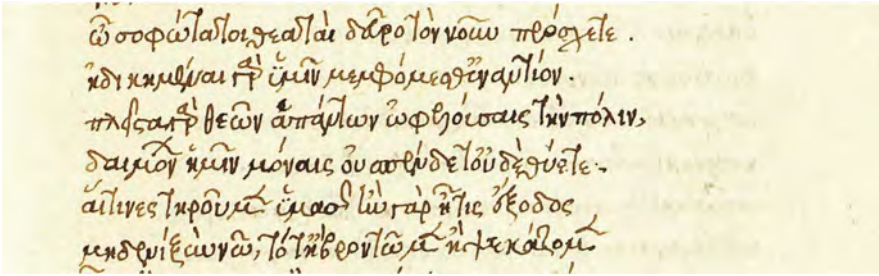 ὦ σοφώτατοι θεαταὶ δεῦρο τὸν νοῦν πρόσχετε.
ἠδικημέναι γὰρ ὑμῖν μεμφόμεσθ' ἐναντίον.
πλεῖστα γὰρ θεῶν ἁπάντων ὠφελούσαις τὴν πόλιν,
δαιμόνων ἡμῖν μόναις οὐ σπένδετ' οὐδὲ θύετε.
αἵτινες τηροῦμεν ὑμᾶς. ἢν γὰρ ᾖ τις ἔξοδος
μηδενὶ ξὺν νῷ, τότ' ἢ βροντῶμεν ἢ ψεκάζομεν